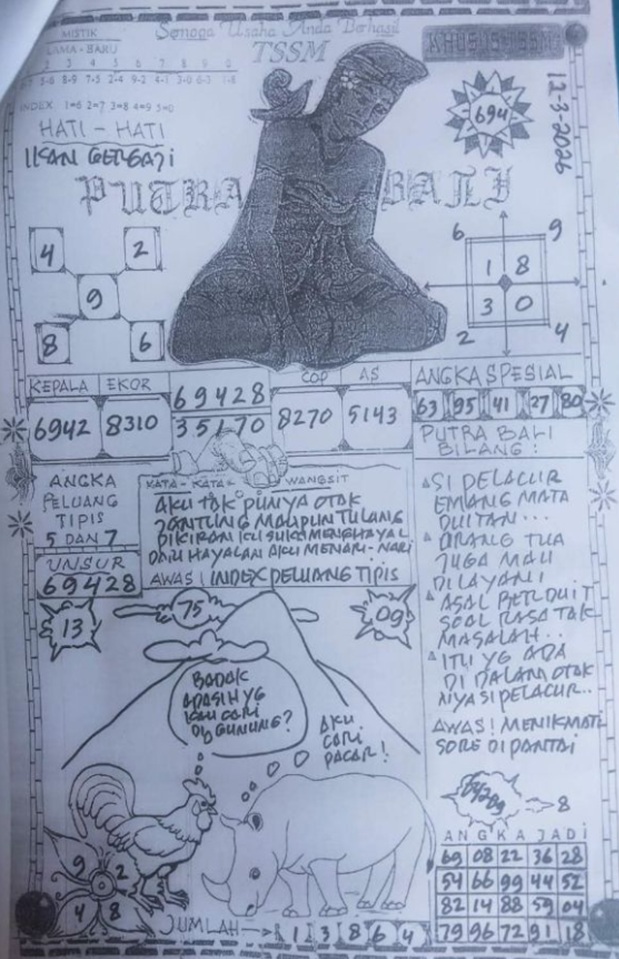 MISTIK
LAMA - BARU
Semoga Usaha Anda Berhasil
TSSM
KHUSUS TSSM
2 3 4 5 6 7 8 9 0
5-6 8-9 7-5 2-4 9-2 4-1 3-0 6-3 1-8
INDEX 1=6 2=7 3=8 4=9 5=0
12-3-2026
694
HATI - HATI
IKAN GERGAJI
PUTRA BALI
4 2
9
8 6
6 9
1 8
3 0
2 4
KEPALA EKOR
6942 8310
69428
35170
COP AS
8270 5143
ANGKA SPESIAL
63 95 41 27 80
PUTRA BALI
BILANG :
ANGKA
PELUANG
TIPIS
5 DAN 7
UNSUR
69428
KATA - KATA - WANGSIT
AKU TAK PUNYA OTAK
JANTUNG MAUPUN TULANG
DIKIRAN KU SUKA MENGHAYAL
DARI HAYALAN AKU MENARI-NARI
AWAS! INDEX PELUANG TIPIS
SI PELACUR
EMANG MATA
DUITAN...
ORANG TUA
JUGA MAU
DILAYANI
ASAL PER DUIT
SOAL RASA TAK
MASALAH..
ITU YG ADA
DI DALAM OTAK
NYA SI PELACUR..
AWAS! MENIKMATI
SORE DI PANTAI
13
75
09
BADAK
APASIH YG
KAU CARI
DI GUNUNG?
AKU
CARI
PACAR!
8
ANGKA JADI
69 08 22 36 28
54 66 99 44 52
82 14 88 59 04
79 96 72 91 18
9 2
4 8
JUMLAH 1 3 8 6 4